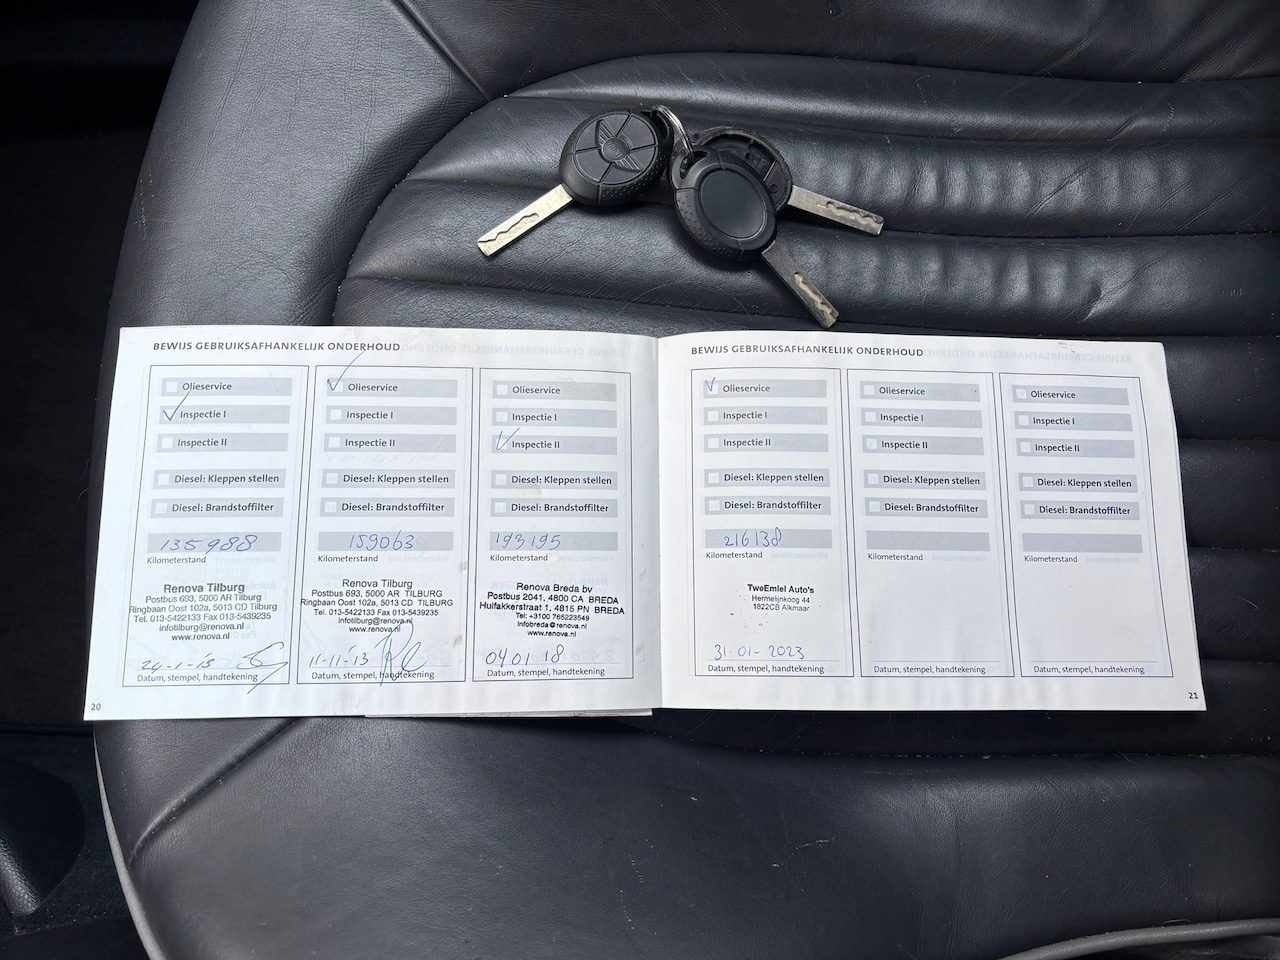 BEWIJS GEBRUIKSAFHANKELIJK ONDERHOUD
Olieservice
Inspectie I
Inspectie II
Diesel: Kleppen stellen
Diesel: Brandstoffilter
135988
Kilometerstand
Renova Tilburg
Postbus 693, 5000 AR Tilburg
Ringbaan Oost 102a, 5013 CD Tilburg
Tel. 013-5422133 Fax 013-5439235
infotilburg@renova.nl
www.renova.nl
24-1-'13
Datum, stempel, handtekening
Olieservice
Inspectie I
Inspectie II
Diesel: Kleppen stellen
Diesel: Brandstoffilter
159063
Kilometerstand
Renova Tilburg
Postbus 693, 5000 AR TILBURG
Ringbaan Oost 102a, 5013 CD TILBURG
Tel. 013-5422133 Fax 013-5439235
infotilburg@renova.nl
www.renova.nl
11-11-'13
Datum, stempel, handtekening
Olieservice
Inspectie I
Inspectie II
Diesel: Kleppen stellen
Diesel: Brandstoffilter
193195
Kilometerstand
Renova Breda bv
Postbus 2041, 4800 CA BREDA
Huifakkerstraat 1, 4815 PN BREDA
Tel: +3100 765223549
infobreda@renova.nl
www.renova.nl
04 01 18
Datum, stempel, handtekening
20
BEWIJS GEBRUIKSAFHANKELIJK ONDERHOUD
Olieservice
Inspectie I
Inspectie II
Diesel: Kleppen stellen
Diesel: Brandstoffilter
216138
Kilometerstand
TweEmiel Auto's
Hermelijnkoog 44
1822CB Alkmaar
31-01-2023
Datum, stempel, handtekening
Olieservice
Inspectie I
Inspectie II
Diesel: Kleppen stellen
Diesel: Brandstoffilter
Kilometerstand
Datum, stempel, handtekening
Olieservice
Inspectie I
Inspectie II
Diesel: Kleppen stellen
Diesel: Brandstoffilter
Kilometerstand
Datum, stempel, handtekening
21